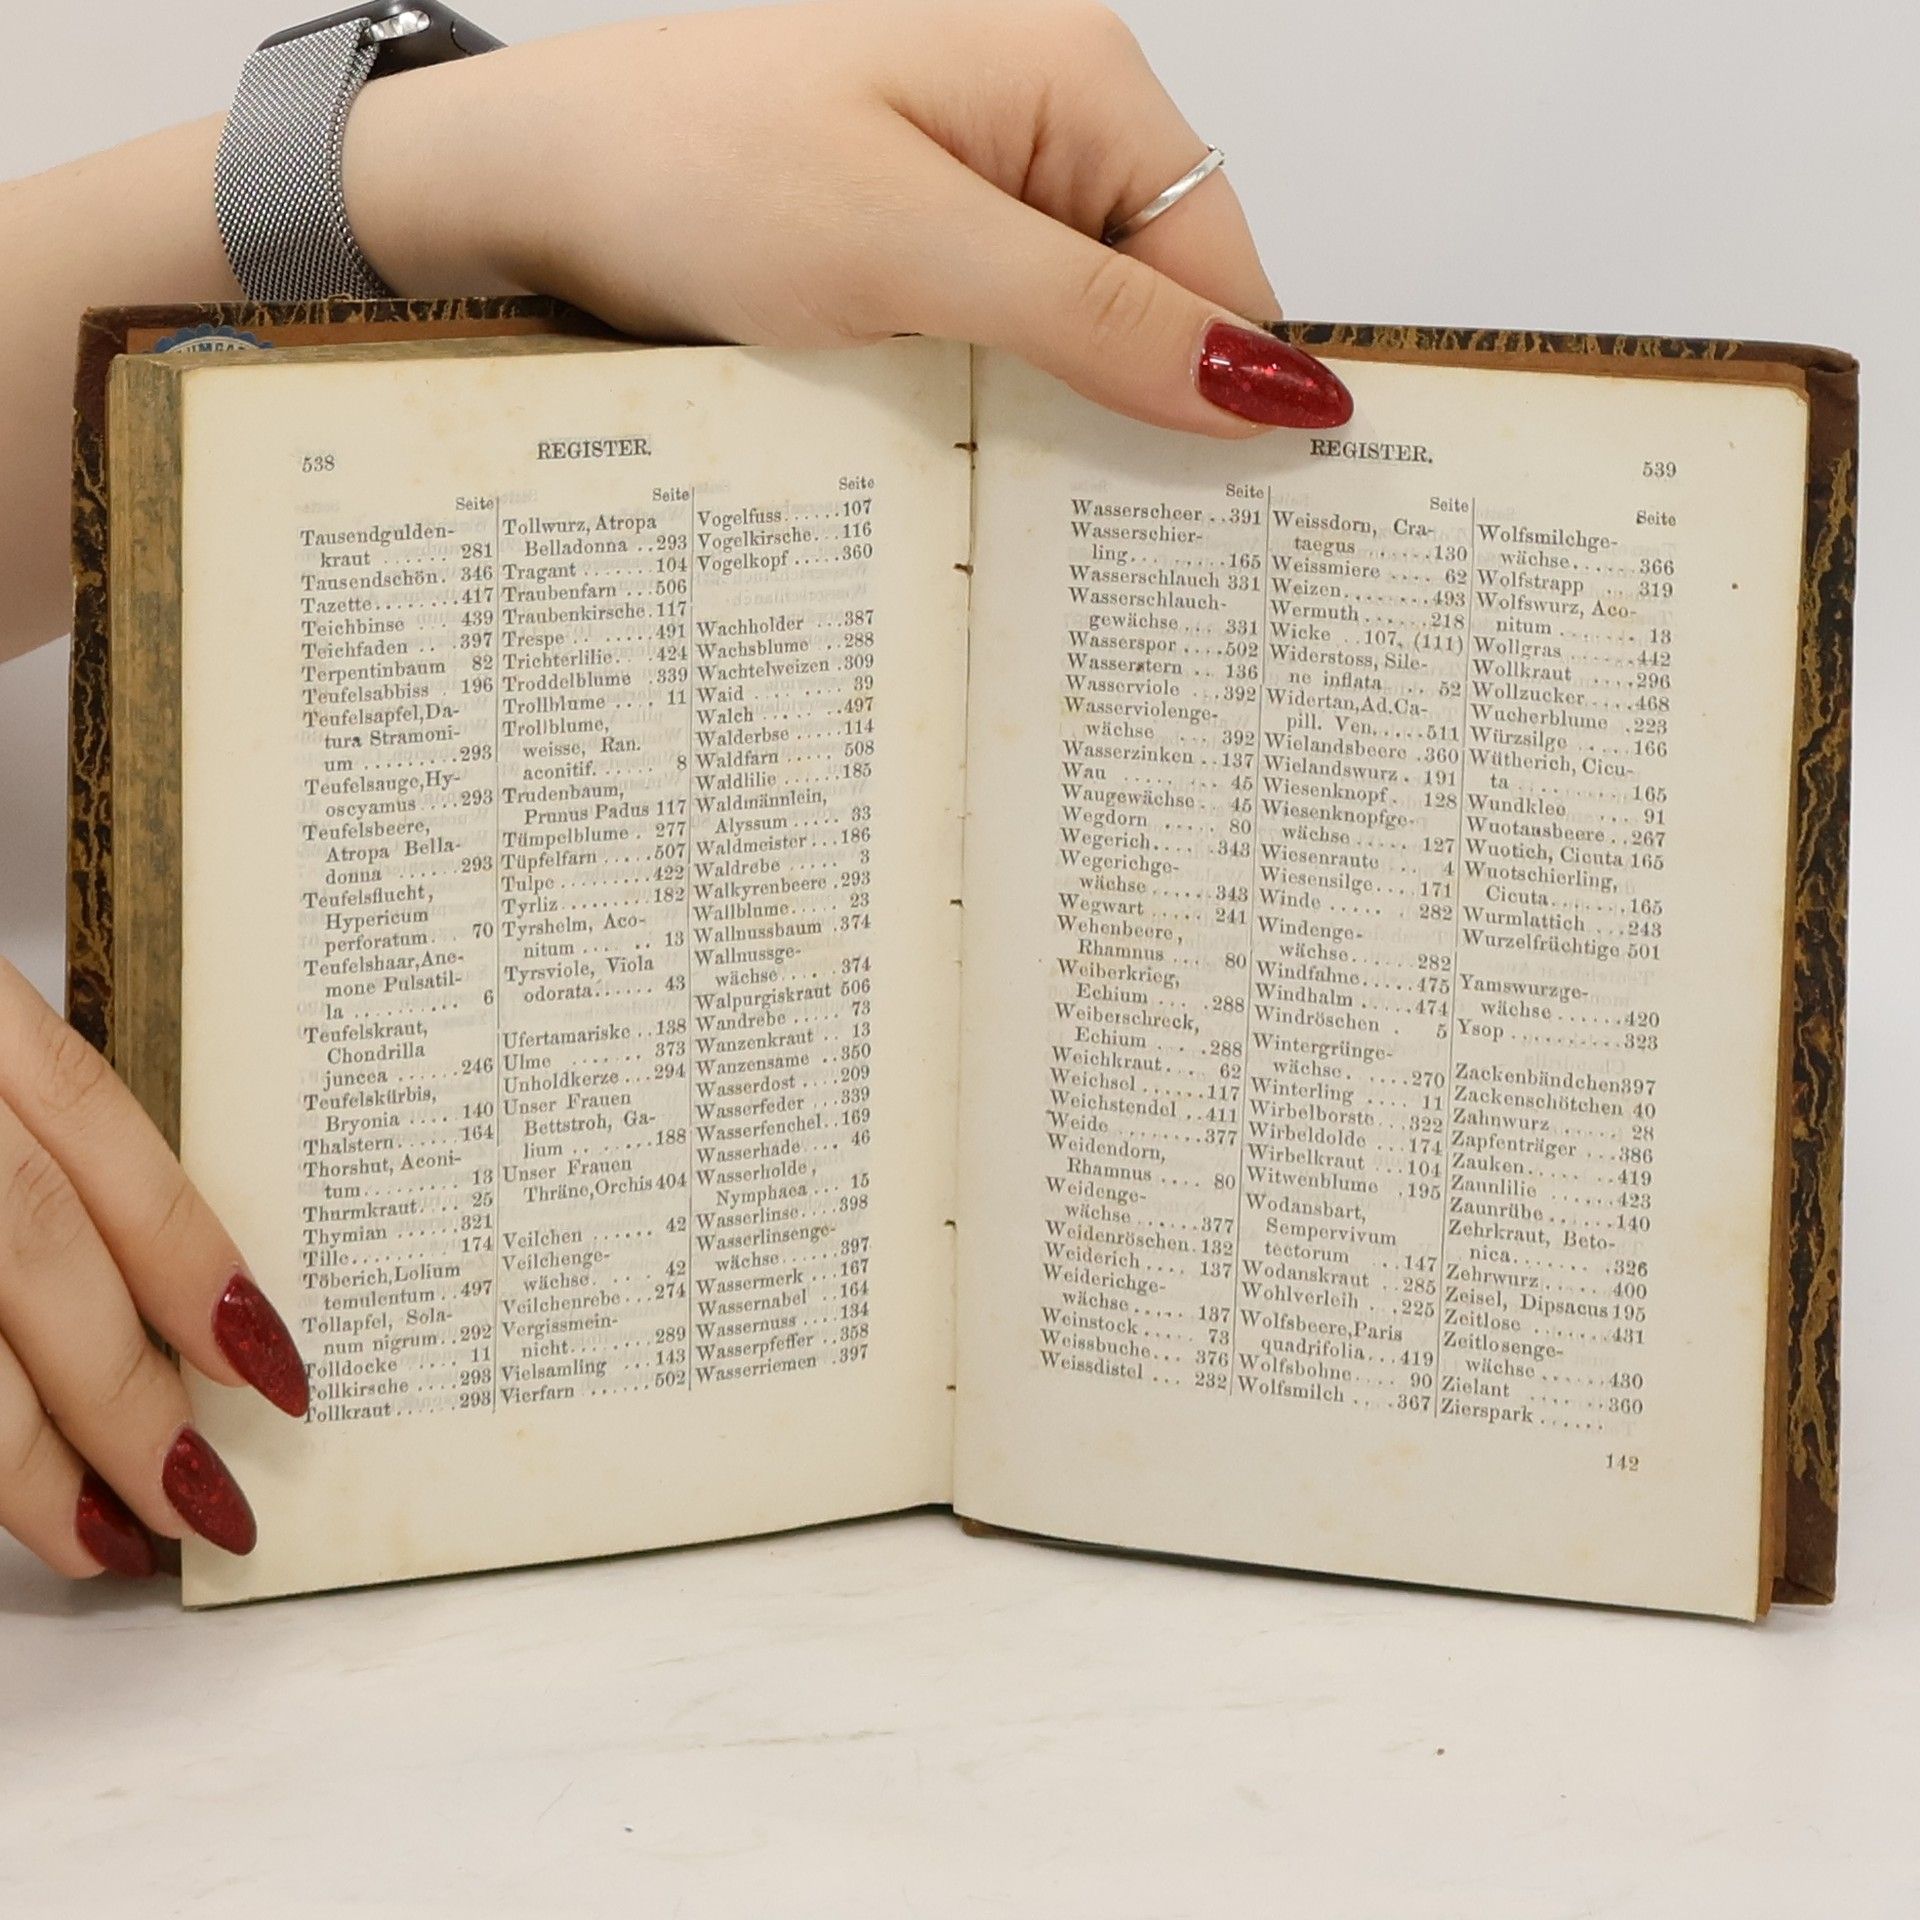 538
REGISTER.
Seite
Tausendgulden-
kraut ....... 281
Tausendschön. 346
Tazette........417
Teichbinse ... 439
Teichfaden .. .397
Terpentinbaum 82
Teufelsabbiss . 196
Teufelsapfel,Da-
tura Stramoni-
um .........293
Teufelsauge,Hy-
oscyamus ....293
Teufelsbeere,
Atropa Bella-
donna ......293
Teufelsflucht,
Hypericum
perforatum. . 70
Teufelshaar,Ane-
mone Pulsatil-
la .......... 6
Teufelskraut,
Chondrilla
juncea ......246
Teufelskürbis,
Bryonia ..... 140
Thalstern......164
Thorshut, Aconi-
tum......... 13
Thurmkraut.... 25
Thymian ......321
Tille......... 174
Töberich,Lolium
temulentum ..497
Tollapfel, Sola-
num nigrum..292
Tolldocke ..... 11
Tollkirsche ....293
Tollkraut......293
Seite
Tollwurz, Atropa
Belladonna ..293
Tragant .......104
Traubenfarn ...506
Traubenkirsche.117
Trespe .. .....491
Trichterlilie. ..424
Troddelblume .339
Trollblume .... 11
Trollblume,
weisse, Ran.
aconitif. ..... 8
Trudenbaum,
Prunus Padus 117
Tümpelblume . 277
Tüpfelfarn .....507
Tulpe .........422
Tyrliz.........182
Tyrshelm, Aco-
nitum .... .. 13
Tyrsviole, Viola
odorata...... 43
Ufertamariske ..138
Ulme ....... 373
Unholdkerze ...294
Unser Frauen
Bettstroh, Ga-
lium .. .....188
Unser Frauen
Thräne,Orchis 404
Veilchen ...... 42
Veilchenge-
wächse. .... 42
Veilchenrebe ...274
Vergissmein-
nicht........289
Vielsamling ...143
Vierfarn .......502
Seite
Vogelfuss......107
Vogelkirsche...116
Vogelkopf .....360
Wachholder ...387
Wachsblume ..288
Wachtelweizen .309
Waid ... .... 39
Walch ..... ..497
Walderbse .....114
Waldfarn ..... 508
Waldlilie ......185
Waldmännlein,
Alyssum ..... 33
Waldmeister ...186
Waldrebe ..... 3
Walkyrenbeere .293
Wallblume..... 23
Wallnussbaum .374
Wallnussge-
wächse.... . 374
Walpurgiskraut 506
Wandrebe ..... 73
Wanzenkraut .. 13
Wanzensame ..350
Wasserdost ....209
Wasserfeder ...339
Wasserfenchel..169
Wasserhade ... 46
Wasserholde,
Nymphaea ... 15
Wasserlinse....398
Wasserlinsenge-
wächse......397
Wassermerk ...167
Wassernabel ..164
Wassernuss ....134
Wasserpfeffer ..358
Wasserriemen .397
REGISTER.
539
Seite
Wasserscheer ..391
Wasserschier-
ling.. ......165
Wasserschlauch 331
Wasserschlauch-
gewächse ... 331
Wasserspor ....502
Wasserstern .. 136
Wasserviole ...392
Wasserviolenge-
wächse ... 392
Wasserzinken ..137
Wau ..... .. 45
Waugewächse.. 45
Wegdorn ..... 80
Wegerich.... .343
Wegerichge-
wächse ......343
Wegwart ..... 241
Wehenbeere,
Rhamnus ... 80
Weiberkrieg,
Echium ... .288
Weiberschreck,
Echium ... .288
Weichkraut.... 62
Weichsel ......117
Weichstendel ..411
Weide ........377
Weidendorn,
Rhamnus .... 80
Weidenge-
wächse ......377
Weidenröschen.132
Weiderich.... 137
Weiderichge-
wächse..... 137
Weinstock ..... 73
Weissbuche... 376
Weissdistel ... 232
Seite
Weissdorn, Cra-
taegus ......130
Weissmiere .... 62
Weizen........493
Wermuth......218
Wicke ..107, (111)
Widerstoss, Sile-
ne inflata .. 52
Widertan,Ad.Ca-
pill. Ven.....511
Wielandsbeere .360
Wielandswurz . 191
Wiesenknopf. 128
Wiesenknopfge-
wächse ..... 127
Wiesenraute .. 4
Wiesensilge....171
Winde ..... . 282
Windenge-
wächse......282
Windfahne.....475
Windhalm .....474
Windröschen . 5
Wintergrünge-
wächse. .....270
Winterling .... 11
Wirbelborste...322
Wirbeldolde ...174
Wirbelkraut ...104
Witwenblume .195
Wodansbart,
Sempervivum
tectorum ...147
Wodanskraut ..285
Wohlverleih ..225
Wolfsbeere,Paris
quadrifolia...419
Wolfsbohne.... 90
Wolfsmilch ...367
Seite
Wolfsmilchge-
wächse......366
Wolfstrapp ..319
Wolfswurz, Aco-
nitum ....... 13
Wollgras ......442
Wollkraut ....296
Wollzucker.....468
Wucherblume .223
Würzsilge .....166
Wütherich, Cicu-
ta .........165
Wundklee ... 91
Wuotansbeere..267
Wuotich, Cicuta 165
Wuotschierling,
Cicuta.......165
Wurmlattich ...243
Wurzelfrüchtige 501
Yamswurzge-
wächse ......420
Ysop ..........323
Zackenbändchen397
Zackenschötchen 40
Zahnwurz ..... 28
Zapfenträger ...386
Zauken..... ..419
Zaunlilie ......423
Zaunrübe ......140
Zehrkraut, Beto-
nica....... .326
Zehrwurz ......400
Zeisel, Dipsacus 195
Zeitlose .......431
Zeitlosenge-
wächse ......430
Zielant .... ..360
Zierspark ......
142